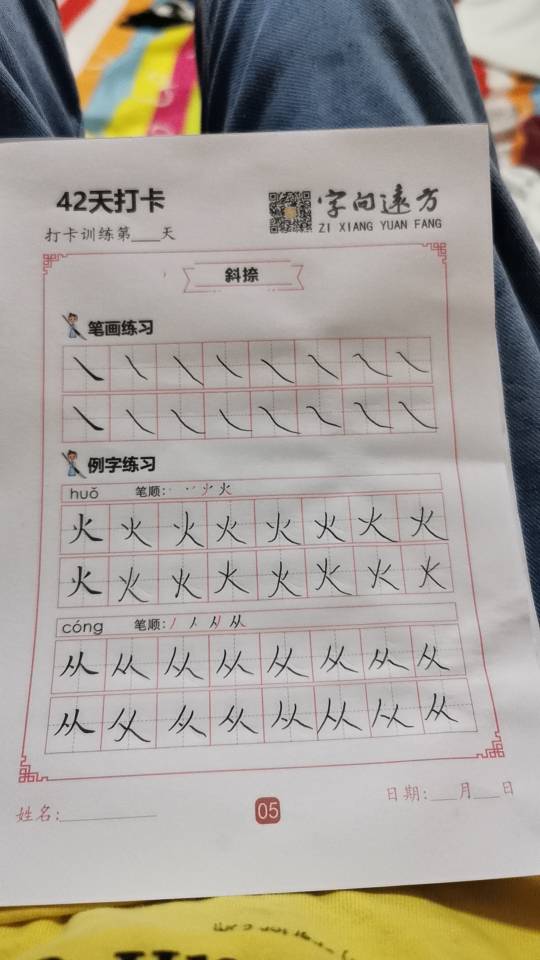 42天打卡
字向遠方
ZI XIANG YUAN FANG
打卡训练第___天
斜捺
笔画练习
㇏ ㇏ ㇏ ㇏ ㇏ ㇏ ㇏ ㇏
㇏ ㇏ ㇏ ㇏ ㇏ ㇏ ㇏ ㇏
例字练习
huǒ 笔顺: 火
火 火 火 火 火 火 火 火
火 火 火 火 火 火 火 火
cóng 笔顺: 丿 人 从
从 从 从 从 从 从 从 从
从 从 从 从 从 从 从 从
姓名:
05
日期:___月___日